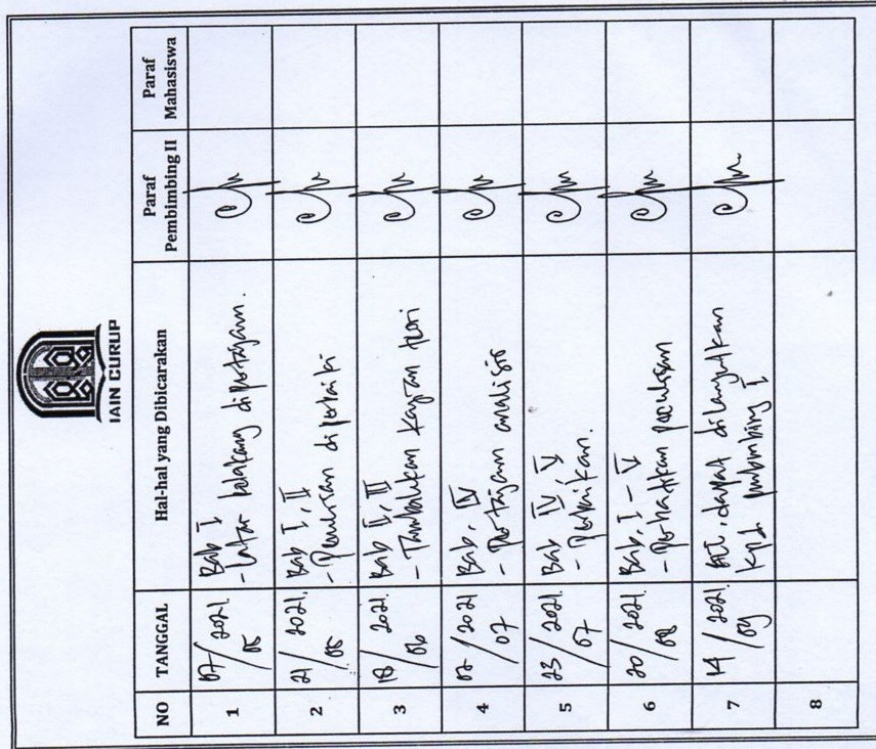 IAIN CURUP
NO TANGGAL Hal-hal yang Dibicarakan Paraf Pembimbing II Paraf Mahasiswa
1 07/05 2021 Bab I
- Latar belakang dipertajam.
2 21/05 2021. Bab I, II
- Penulisan diperbaiki
3 18/06 2021. Bab II, III
- Tambahkan kajian teori
4 02/07 2021 Bab, IV
- Pertajam analisis
5 23/07 2021. Bab IV, V
- Perbaikan.
6 20/08 2021. Bab, I - V
- Perhatikan penulisan
7 14/09 2021. Acc, dapat dilanjutkan
kpd. pembimbing I
8